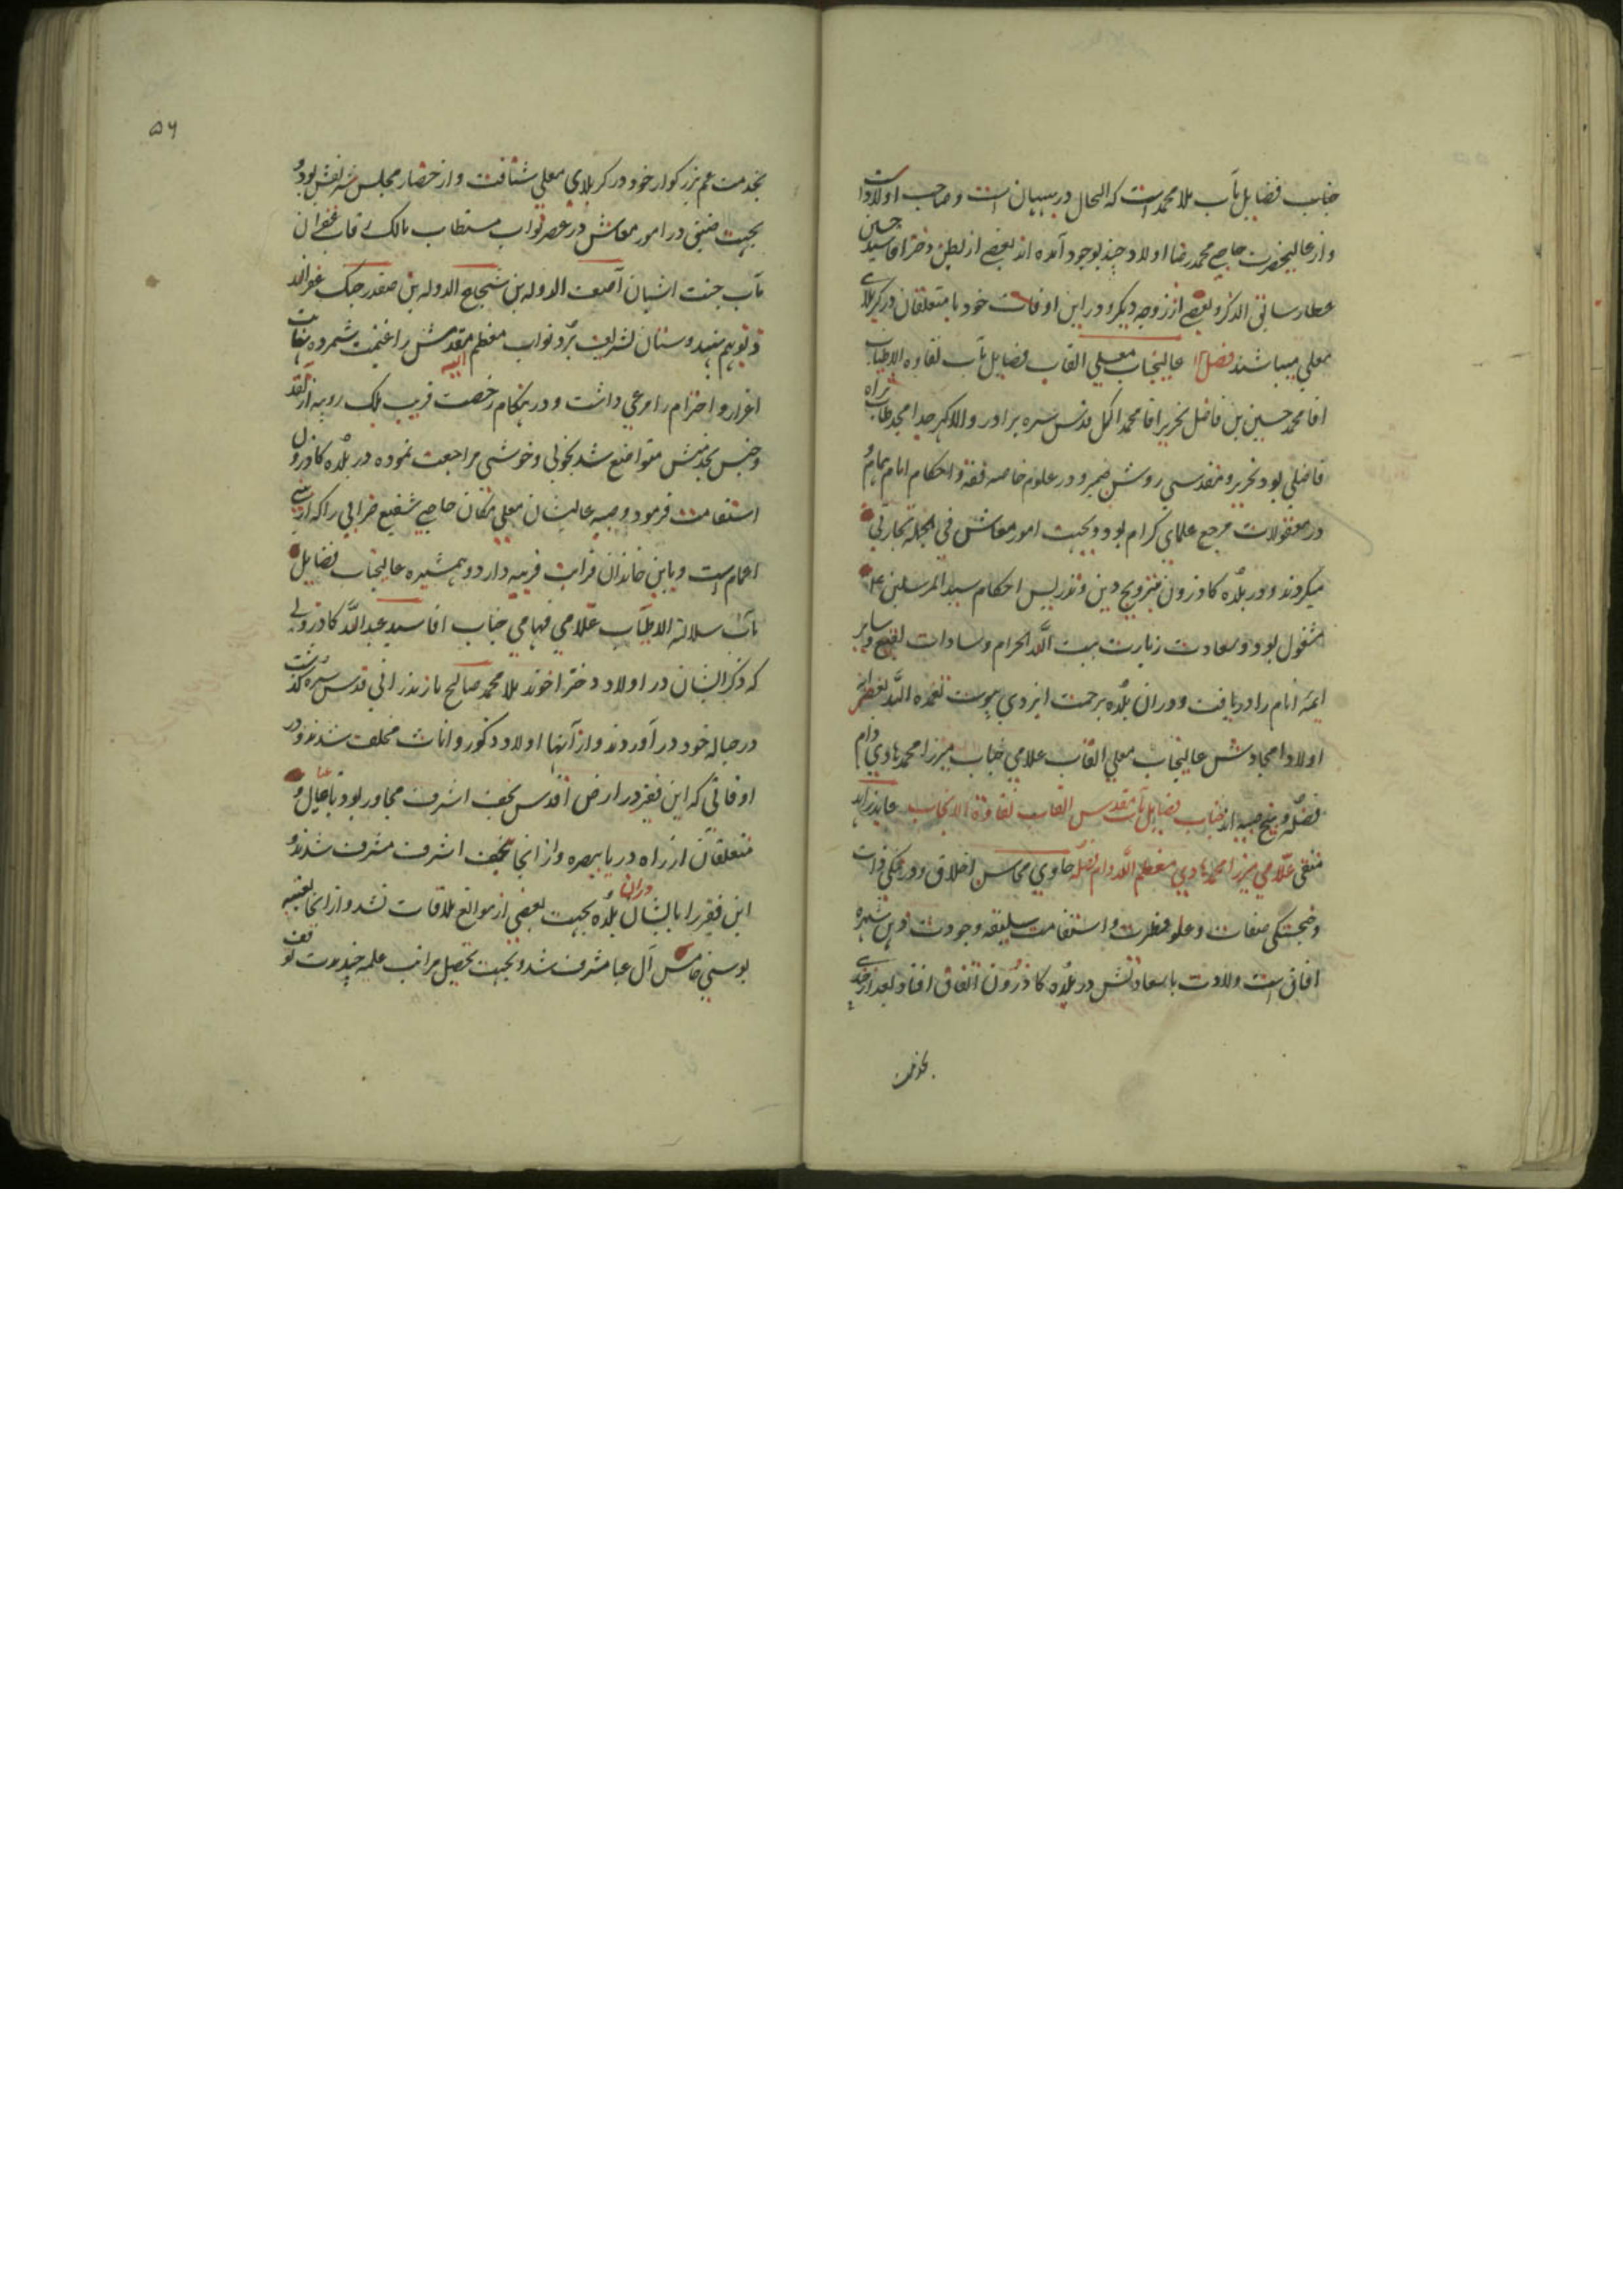 جناب فضایل مآب ملا محمد است که الحال در بهبهان است و صاحب اولاد است
و از عالیحضرت حاجی محمد رضا اولاد چند بوجود آمده اند بعضی از بطن دختر اقا سید حسین
عطار سابق الذکر و بعضی از زوجه دیگر و در این اوقات خود با متعلقان در کربلای
معلی میباشند فصل عالیجناب معلی القاب فضایل مآب نقاوه الاطیاب
اقا محمد حسین بن فاضل نحریر اقا محمد اکمل قدس سره برادر والاکهر جد امجد طاب ثراه
فاضلی بود نحریر و مقدسی روشن ضمیر و در علوم خاصه فقه و احکام امام همام و
در معقولات مرجع علمای کرام بود و بجهت امور معاش فی الجمله تجارتی
میکردند و در بلده کازرون بترویج دین و تدریس احکام سید المرسلین
مشغول بود و سعادت زیارت بیت الله الحرام و سادات بقیع و سایر
ایمه انام را دریافت و در ان بلده برحمت ایزدی پیوست تغمده الله بغفرانه
اولاد امجادش عالیجناب معلی القاب علامی جناب میرزا محمد هادی دام
فضله و پنج صبیه اند جناب فضایل مآب مقدس القاب نقاوة الانجاب عابد زاهد
متقی علامی میرزا محمد هادی معظم الله دام فضله حاوی محاسن اخلاق و در نیکی ذات
و خجستگی صفات و علو فطرت و استقامت سلیقه وجودت ذهن شهره
افاق است ولادت با سعادتش در بلده کازرون اتفاق افتاد بعد از چندی
بخدمت
۵۶
بخدمت عم بزرکوار خود در کربلای معلی شتافت و از حضار مجلس شریفش بود و
بجهت ضیقی در امور معاش در عصر نواب مستطاب مالک رقاب غفران
مآب جنت اشیان آصف الدوله بن شجاع الدوله بن صفدر جنک غفر الله
ذنوبهم بهندوستان تشریف برد و نواب معظم الیه مقدمش را غنیمت شمرده نهایت
اعزاز و احترام را مرعی داشت و در هنکام رخصت قریب بلک روپیه از نقد
و جنس بخدمتش متواضع شد بخوبی و خوشی مراجعت نموده در بلده کازرون
استقامت فرمود و صبیه عالیشان معلی مکان حاجی شفیع ضرابی را که از بنی
اعمام است و باین خاندان قرابت قریبه دارد و همشیره عالیجناب فضایل
مآب سلالة الاطیاب علامی فهامی جناب اقا سید عبدالله کازرونی
که ذکر ایشان در اولاد دختر اخوند ملا محمد صالح مازندرانی قدس سره کذشت
در حباله خود در آوردند و از آنها اولاد ذکور و اناث مخلف شدند و در
اوقاتی که این فقیر در ارض اقدس نجف اشرف مجاور بود با عیال و
متعلقان از راه دریا ببصره و از انجا بنجف اشرف مشرف شدند و
این فقیر را با ایشان دران بلده بجهت بعضی از موانع ملاقات نشد و از انجا بعتبه
بوسی خامس آل عبا مشرف شد و بجهت تحصیل مراتب علمیه چند مدت توقف